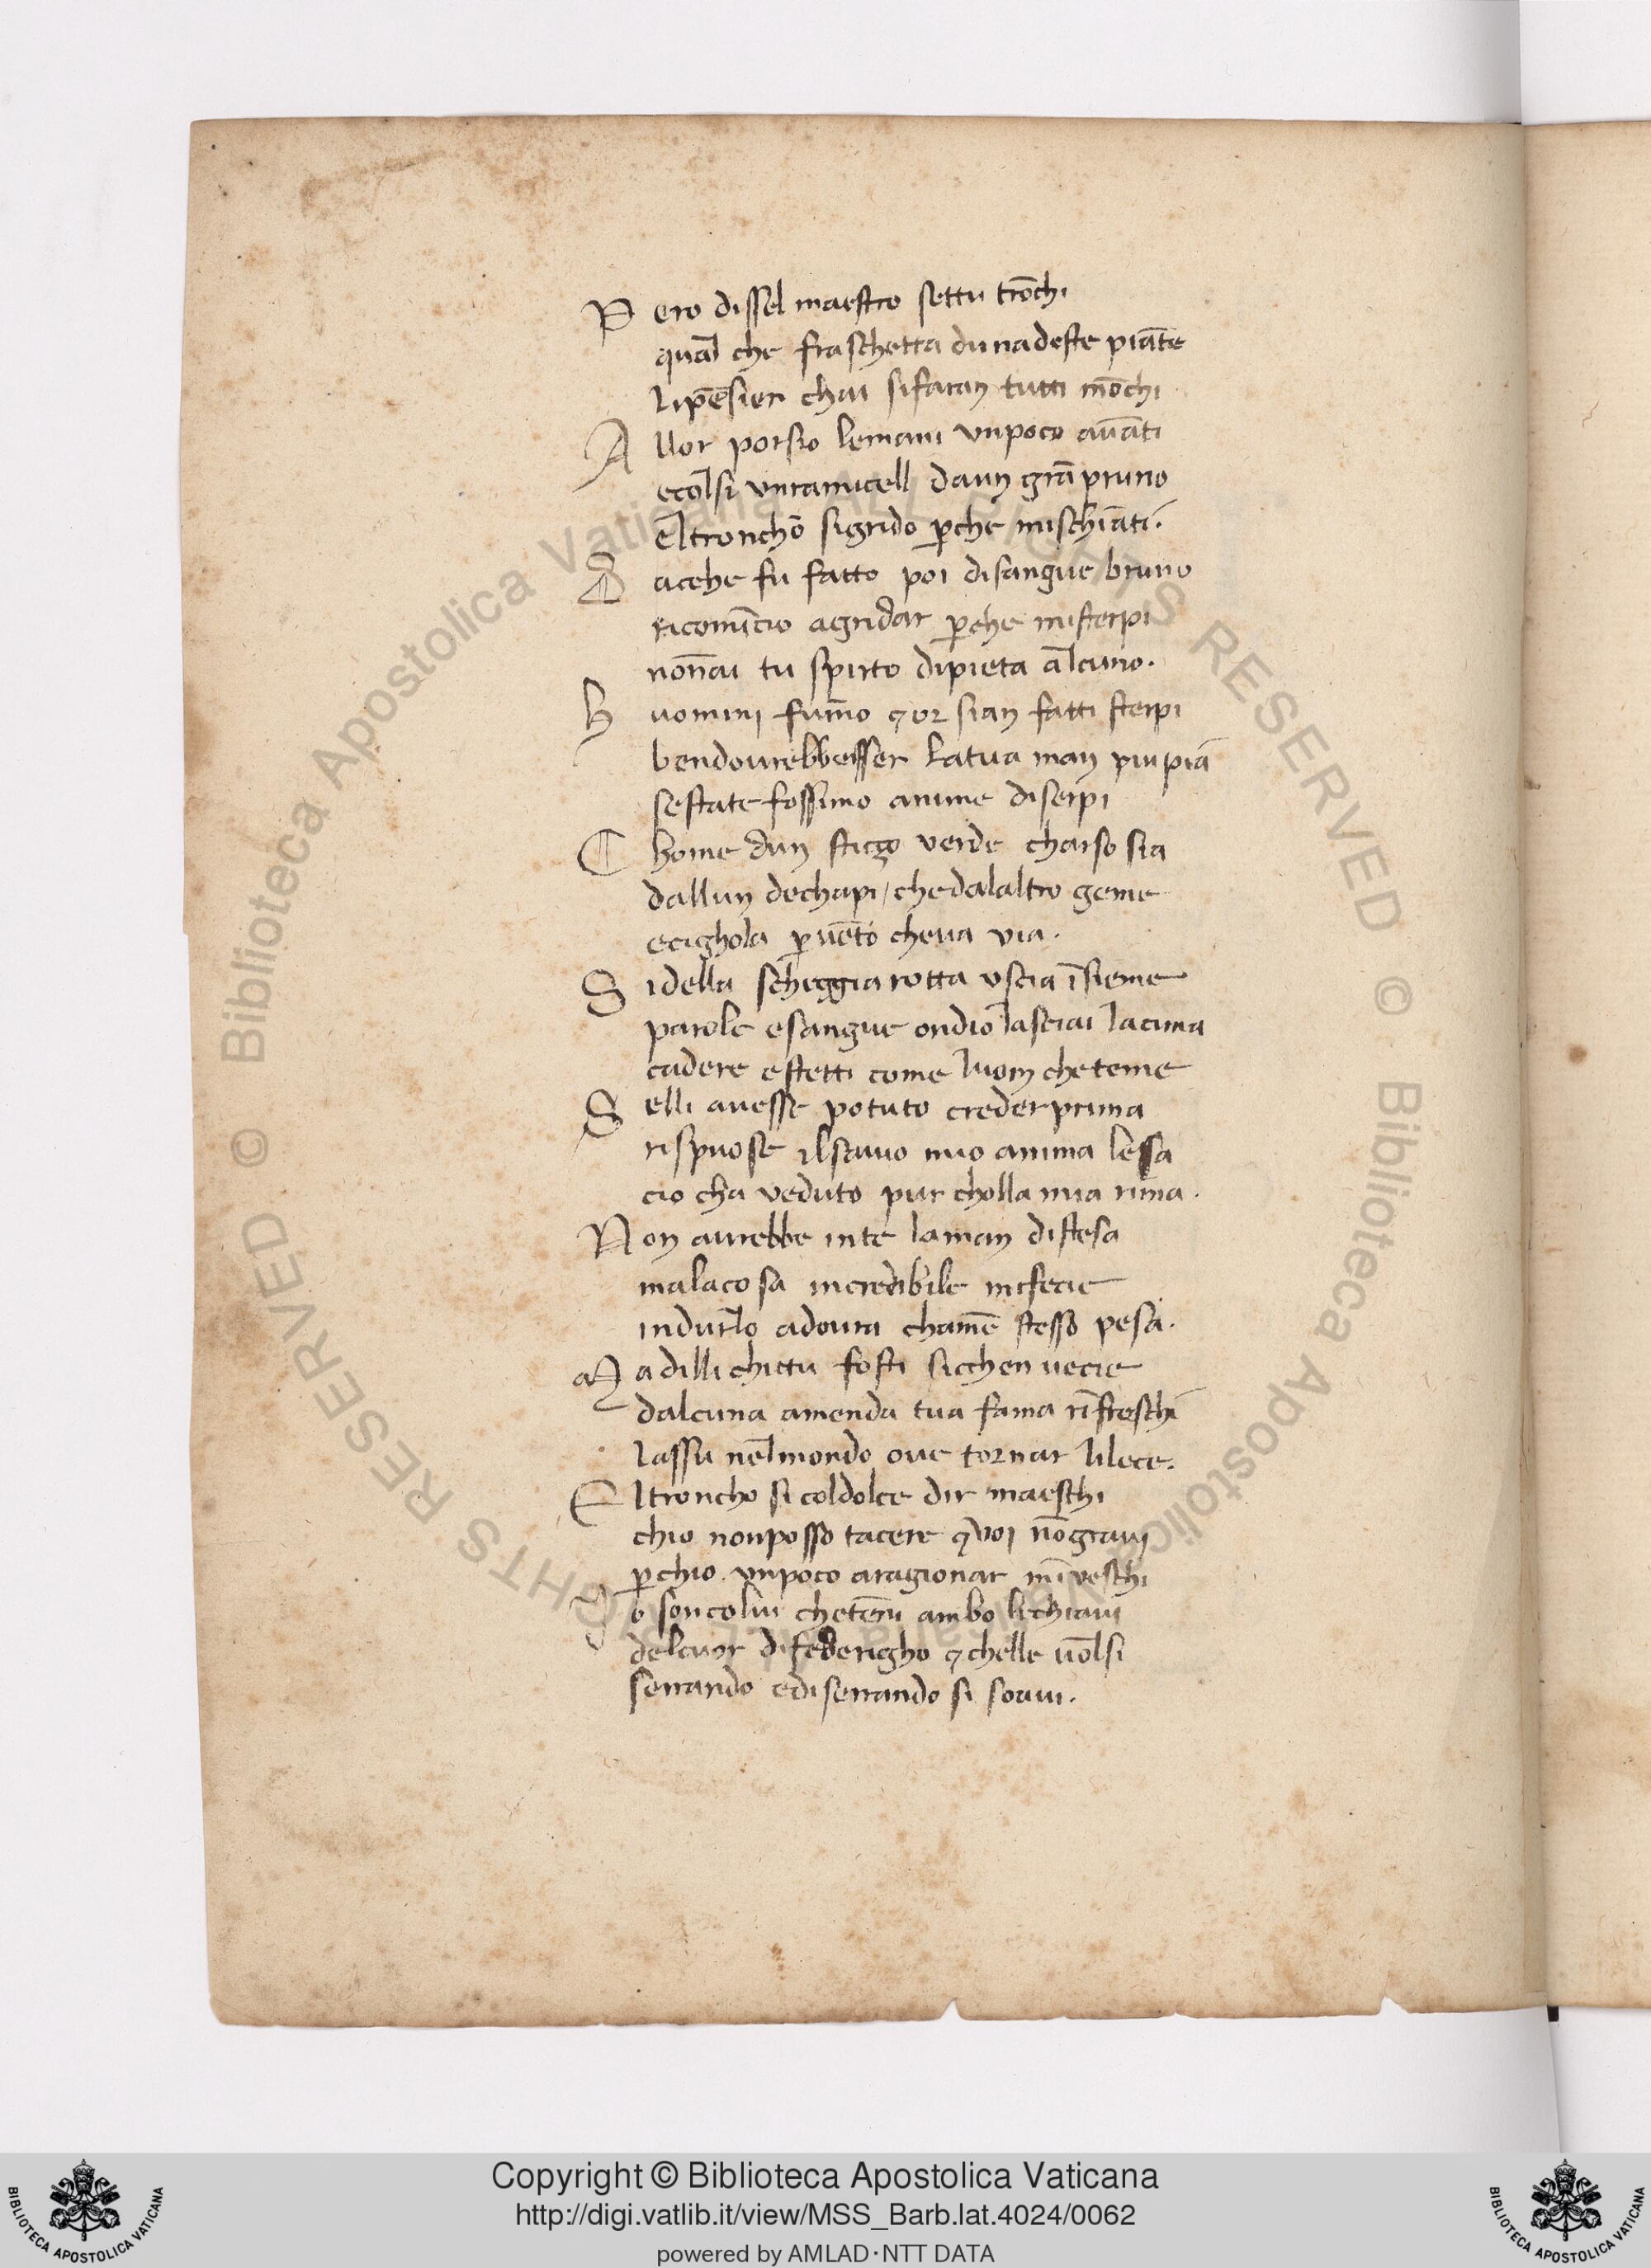 Pero dissel maestro settu trōchi
qual che fraschetta dunadeste piāte
lipēsier chai sifaran tutti mōchi
Allor porsio lemani unpoco auāti
ecolsi unramicell daun grā pruno
eltronchō sigrido p̄che mischiāti.
Dacche fu fatto poi disangue bruno
ricomīcio agridar p̄che misterpi
nonai tu spirto dipieta alcuno.
Huomini fumō ꝯ or sian fatti sterpi
bendourebbesser latua man piupia
sestate fossimo anime diserpi
Chome dun stizo verde charso sia
dallun dechapi / chedalaltro geme
ecighola p̄ uēto cheua via.
Sidella scheggia rotta uscia īsieme
parole esangue ondio lasciai lacima
cadere estetti come luom cheteme
Selli auesse potuto creder prima
rispuose ilsauio mio anima lesa
cio cha veduto pur cholla mia rima.
Non aurebbe inte laman distesa
malacosa incredibile mifecie
indurlo adoura chamē stesso pesa.
Ma dilli chittu fosti sicchen uecie
dalcuna amenda tua fama rīfreschi
lassu nelmondo oue tornar lilece.
Eltroncho si coldolce dir maeschi
chio nonposso tacere ꝯ voi nōgraui
p̄chio unpoco aragionar mīveschi
Io soncolui chetēni ambo lechiaui
delcuor difederigho ꝯ chelle uolsi
serrando ediserrando si soaui.
Copyright © Biblioteca Apostolica Vaticana
http://digi.vatlib.it/view/MSS_Barb.lat.4024/0062
powered by AMLAD·NTT DATA
BIBLIOTECA APOSTOLICA VATICANA
BIBLIOTECA APOSTOLICA VATICANA